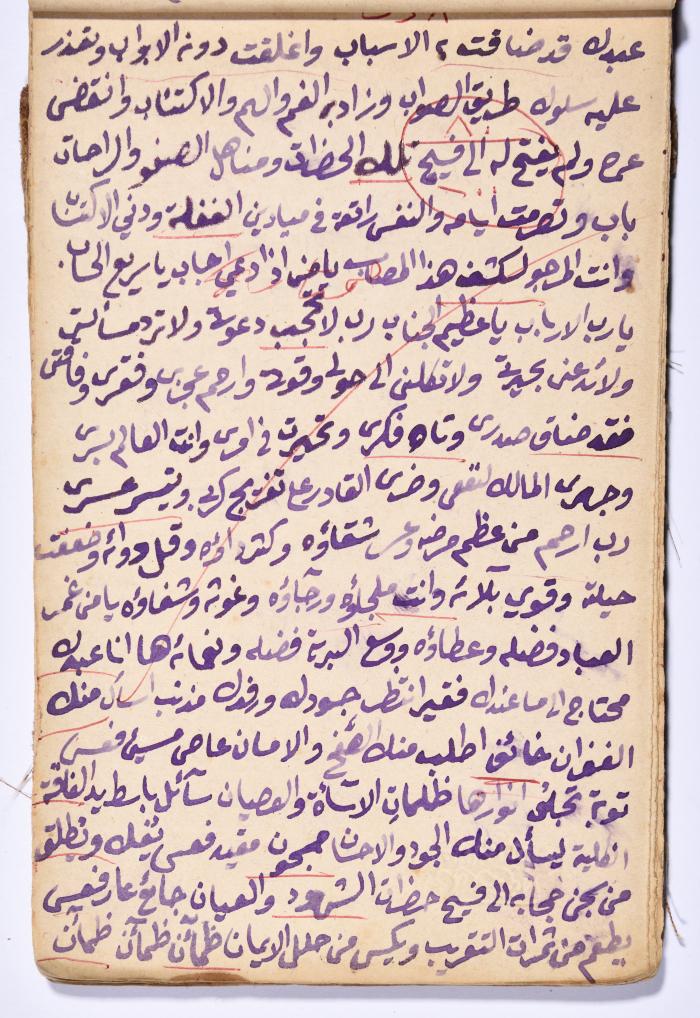 عبدك قد ضاقت به الاسباب واغلقت دونه الابواب وتعذر
عليه سلوك طريق الصواب وزاد به الغم والهم والاكتئاب وانقضى
عمره ولم يفتح له الى فسيح تلك الحضرات ومناهل الصفو والراحات
باب وتصرمت ايامه والنفس راتعة في ميادين الغفلة ودني الاكتساب
وانت المرجو لكشف هذا المصاب يا من اذا دعي اجاب يا سريع الحساب
يا رب الارباب يا عظيم الجناب رب لا تحجب دعوتي ولا ترد مسألتي
ولا تدعني بحيرتي ولا تكلني الى حولي وقوتي وارحم عجزي وفقري وفاقتي
فقد ضاق صدري وتاه فكري وتحيرت في امري وانت العالم بسري
وجهري المالك لنفعي وضري القادر على تفريج كربي وتيسير عسري
رب ارحم من عظم مرضه وعز شفاؤه وكثر داؤه وقل دوائه وضعفت
حيلته وقوي بلائه وانت ملجاؤه ورجاؤه وغوثه وشفاؤه يا من غمر
العباد فضله وعطاؤه ووسع البرية فضله ونعمائه ها انا عبدك
محتاج الى ما عندك فقير انتظر جودك ورفدك مذنب اسأل منك
الغفران خائف اطلب منك الصفح والامان عاص مسيئ فعسى
توبة تجلى انوارها ظلمات الاسائة والعصيان سآئل باسط يد الفاقة
الكلية يسأل منك الجود والاحسان مسجون مقيد فعسى يفك ويطلق
من سجن حجابه الى فسيح حضرات الشهود والعيان جائع عار فعسى
يطعم من ثمرات التقريب ويكسى من حلل الايمان ظمآن ظمآن ظمآن